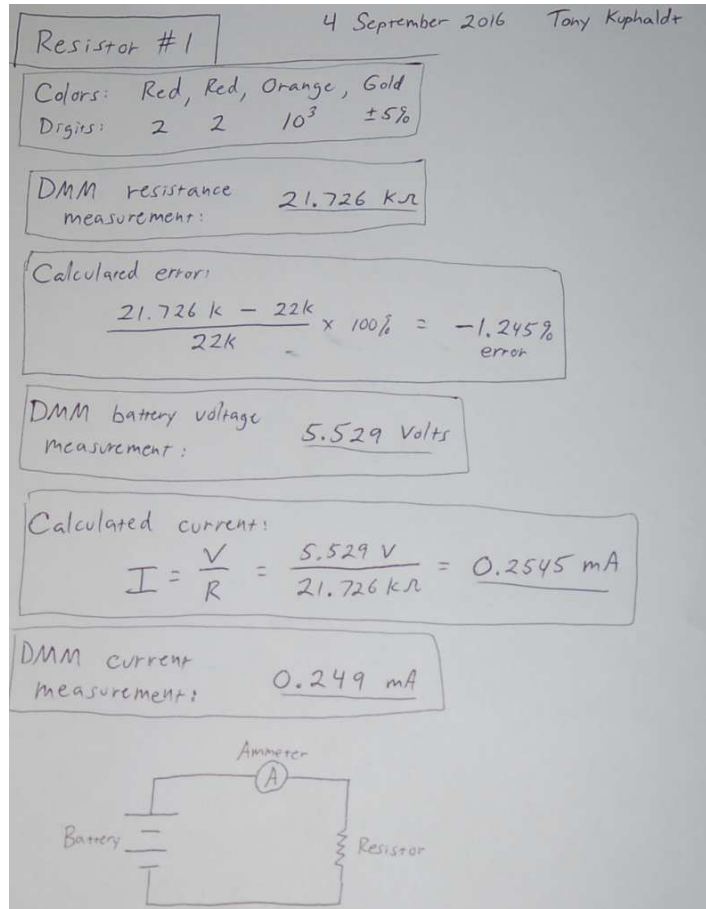 4 September 2016 Tony Kuphaldt
Resistor #1
Colors: Red, Red, Orange, Gold
Digits: 2 2 10³ ±5%
DMM resistance
measurement: 21.726 kΩ
Calculated error:
21.726 k - 22k
22k
× 100% = -1.245%
error
DMM battery voltage
measurement: 5.529 Volts
Calculated current:
I = V/R = 5.529 V / 21.726 kΩ = 0.2545 mA
DMM current
measurement: 0.249 mA
Ammeter
A
Battery
Resistor